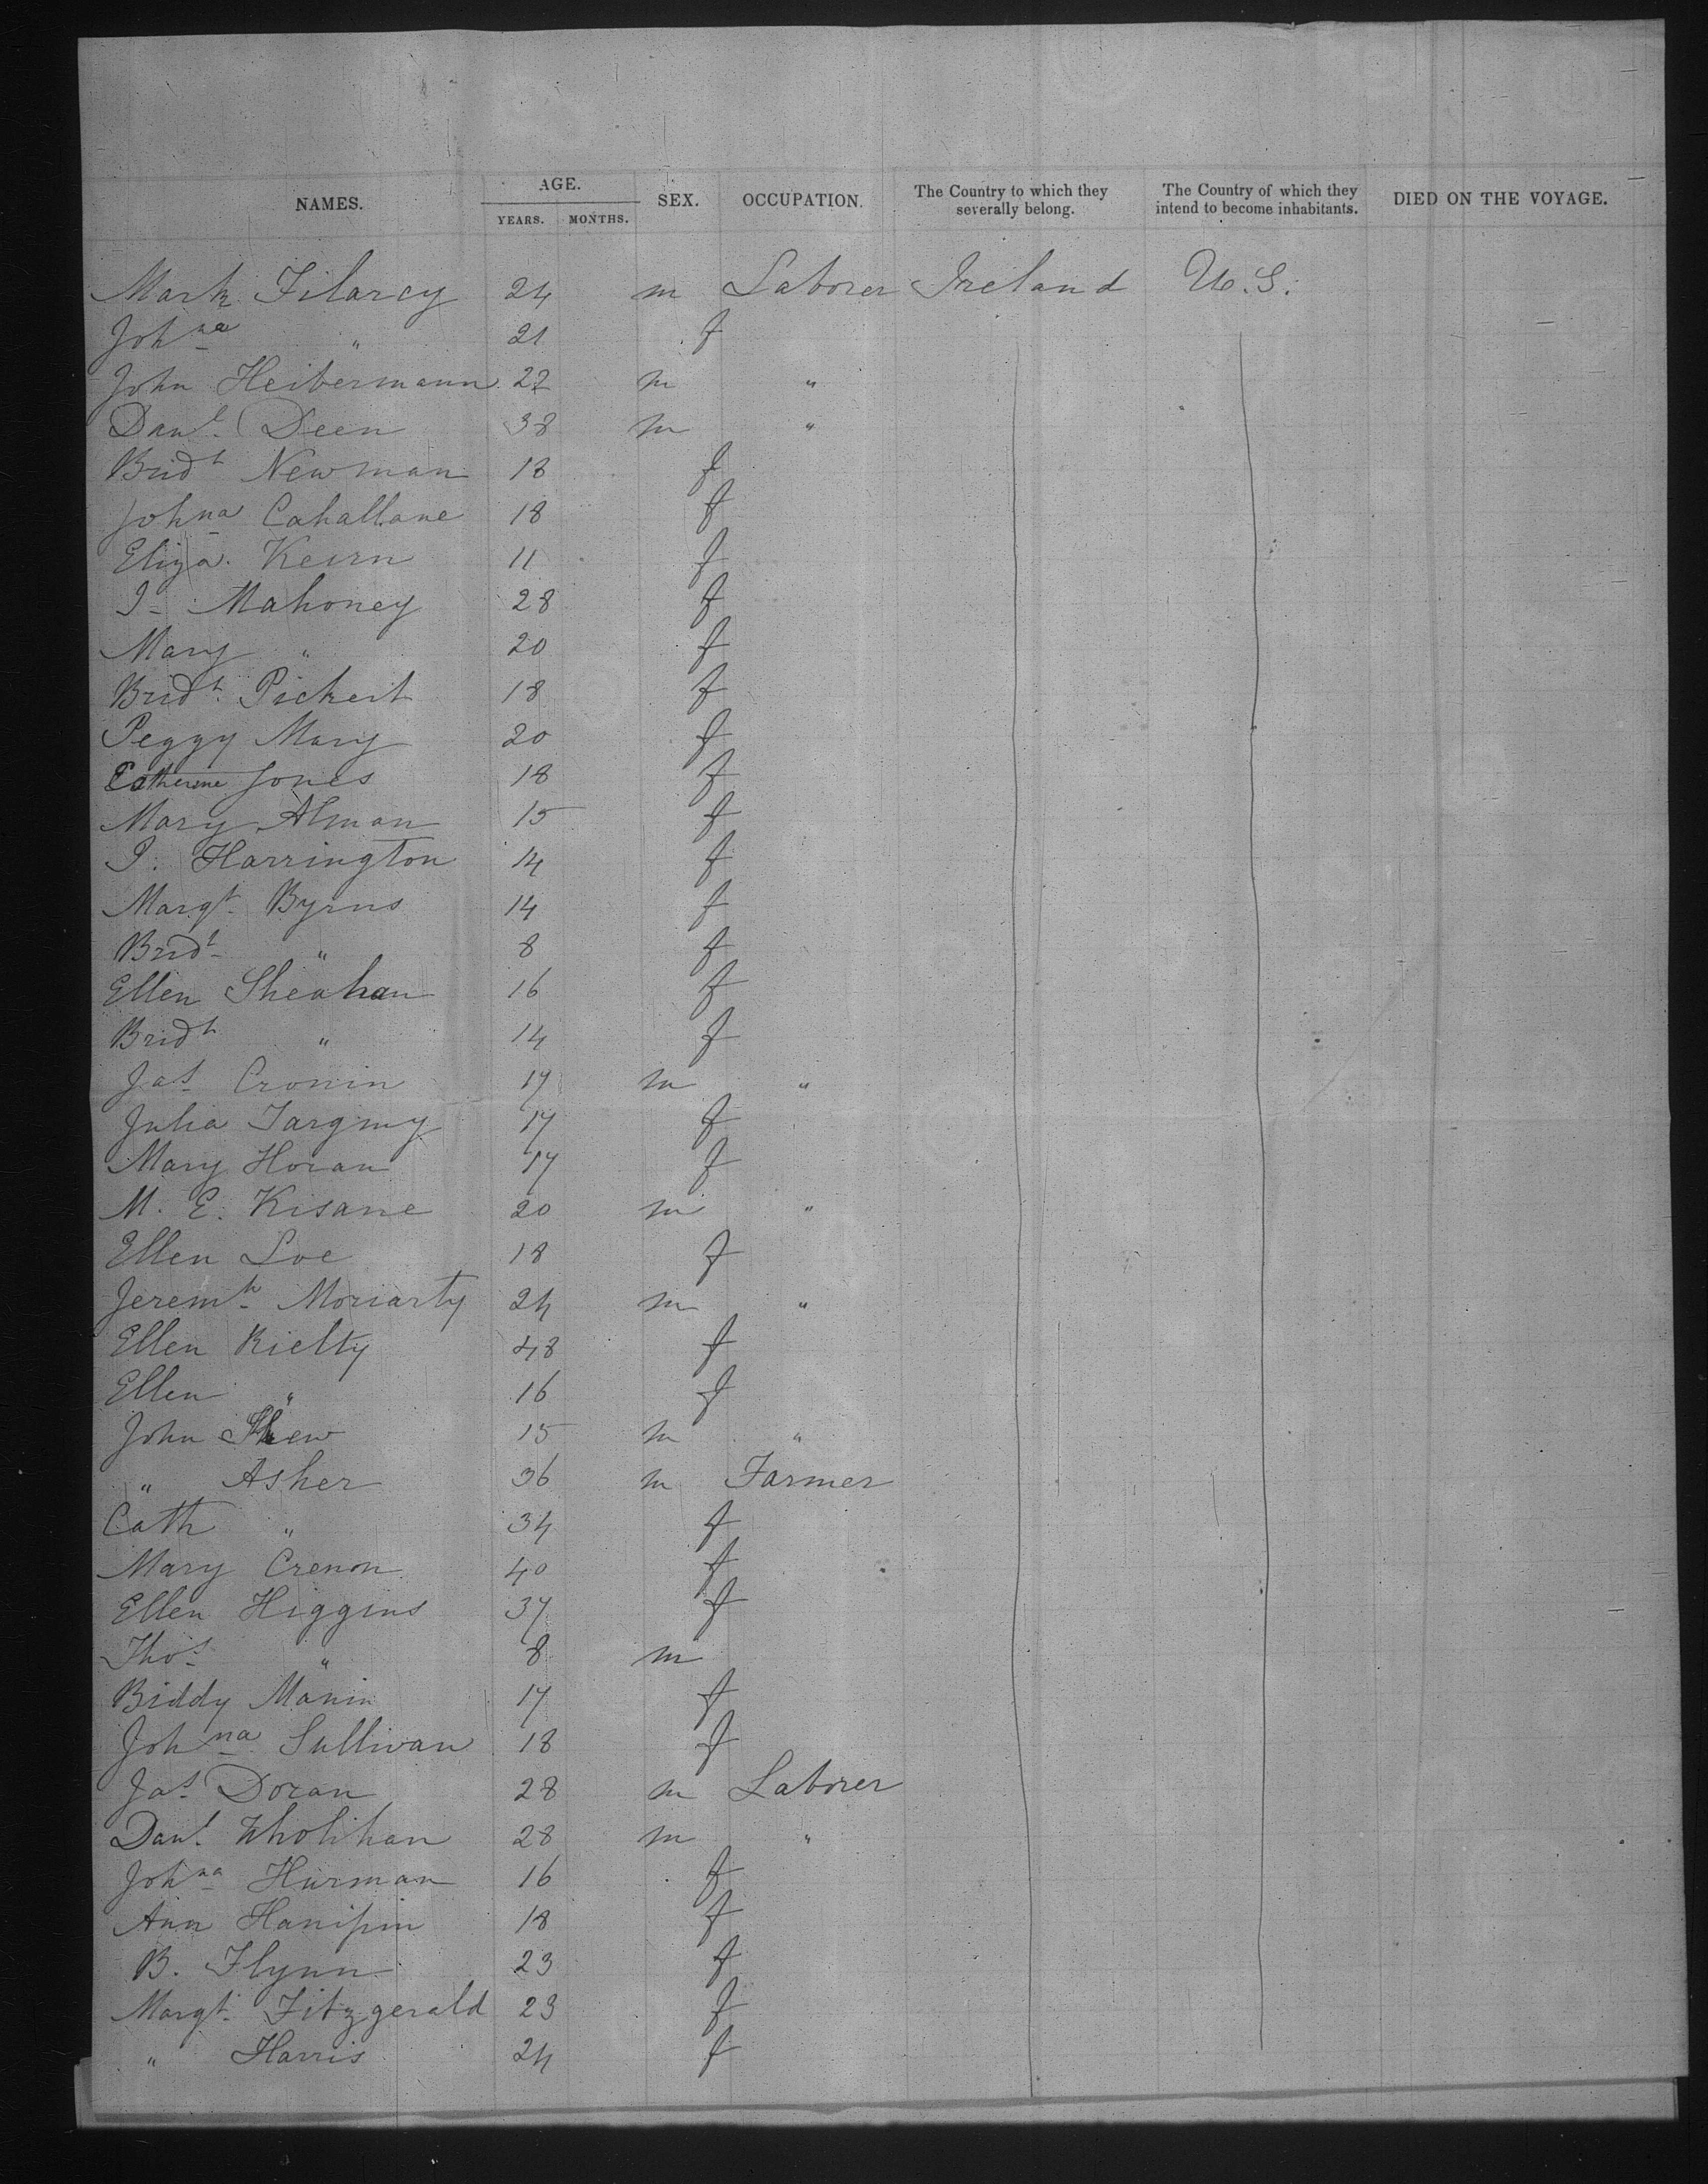 NAMES. AGE. YEARS. MONTHS. SEX. OCCUPATION. The Country to which they severally belong. The Country of which they intend to become inhabitants. DIED ON THE VOYAGE.
Mark Filarcy 24 m Laborer Ireland U.S.
Johna " 21 f
John Heibermann 22 m "
Danl. Deen 38 m "
Bridt Newman 18 f
Johna Cahallane 18 f
Eliza. Keirn 11 f
I. Mahoney 28 f
Mary " 20 f
Bridt. Pickert 18 f
Peggy Mary 20 f
Catherine Jones 18 f
Mary Alman 15 f
I. Harrington 14 f
Margt. Byrns 14 f
Bridt " 8 f
Ellen Sheahan 16 f
Bridt " 14 f
Jas Cronin 17 m "
Julia 17 f
Mary Horan 17 f
M. E. Kisane 20 m "
Ellen Loe 18 f
Jeremh Moriarty 24 m "
Ellen Rielty 48 f
Ellen " 16 f
John 15 m "
" Asher 36 m Farmer
Cath " 34 f
Mary Crenon 40 f
Ellen Higgins 37 f
Thos " 8 m
Biddy Manin 17 f
Johna Sullivan 18 f
Jas Doran 28 m Laborer
Danl. Wholihan 28 m "
Johna Hurman 16 f
Ann Hanifin 18 f
B. Flynn 23 f
Margt. Fitzgerald 23 f
" Harris 24 f